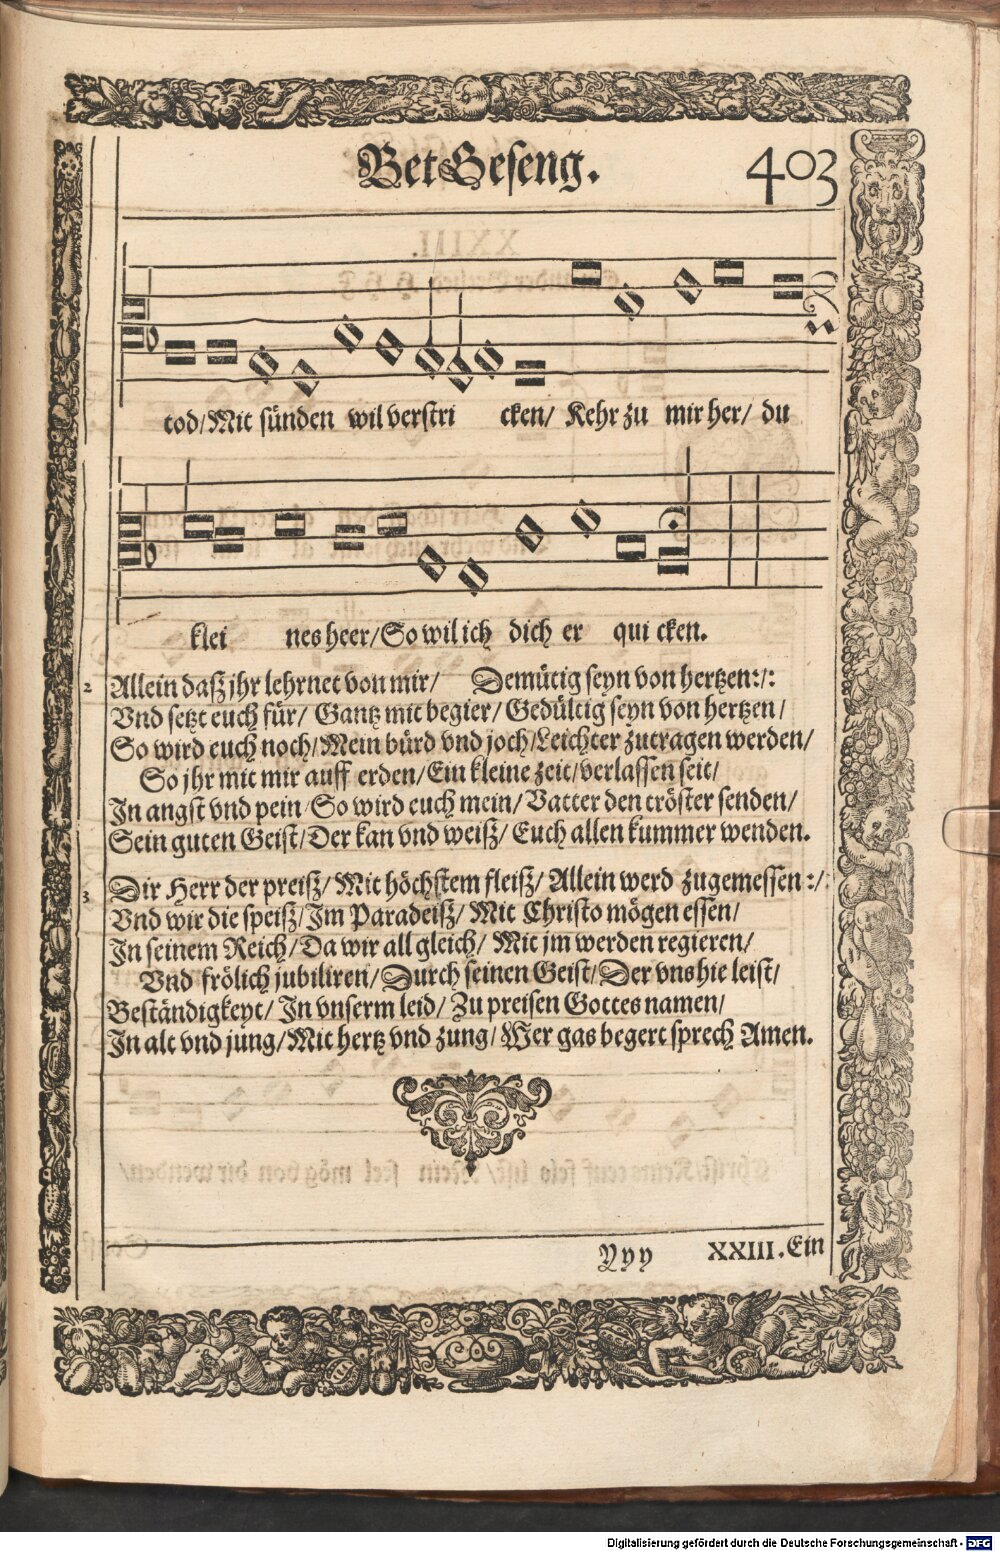 Bet Geseng. 403
tod/Mit sünden wil verstri cken/ Kehr zu mir her/ du
klei nes heer/So wil ich dich er qui cken.
2 Allein daß jhr lehrnet von mir/ Demütig seyn von hertzen:/:
Vnd setzt euch für/ Gantz mit begier/ Gedültig seyn von hertzen/
So wird euch noch/Mein bürd vnd joch/Leichter zutragen werden/
So jhr mit mir auff erden/Ein kleine zeit/verlassen seit/
In angst vnd pein/So wird euch mein/ Vatter den tröster senden/
Sein guten Geist/Der kan vnd weiß/ Euch allen kummer wenden.
3 Dir Herr der preiß/ Mit höchstem fleiß/ Allein werd zugemessen:/:
Vnd wir die speiß/Im Paradeiß/ Mit Christo mögen essen/
In seinem Reich/Da wir all gleich/ Mit jm werden regieren/
Vnd frölich jubiliren/Durch seinen Geist/Der vns hie leist/
Beständigkeyt/ In vnserm leid/ Zu preisen Gottes namen/
In alt vnd jung/Mit hertz vnd zung/ Wer gas begert sprech Amen.
Yyy XXIII. Ein
Digitalisierung gefördert durch die Deutsche Forschungsgemeinschaft - DFG